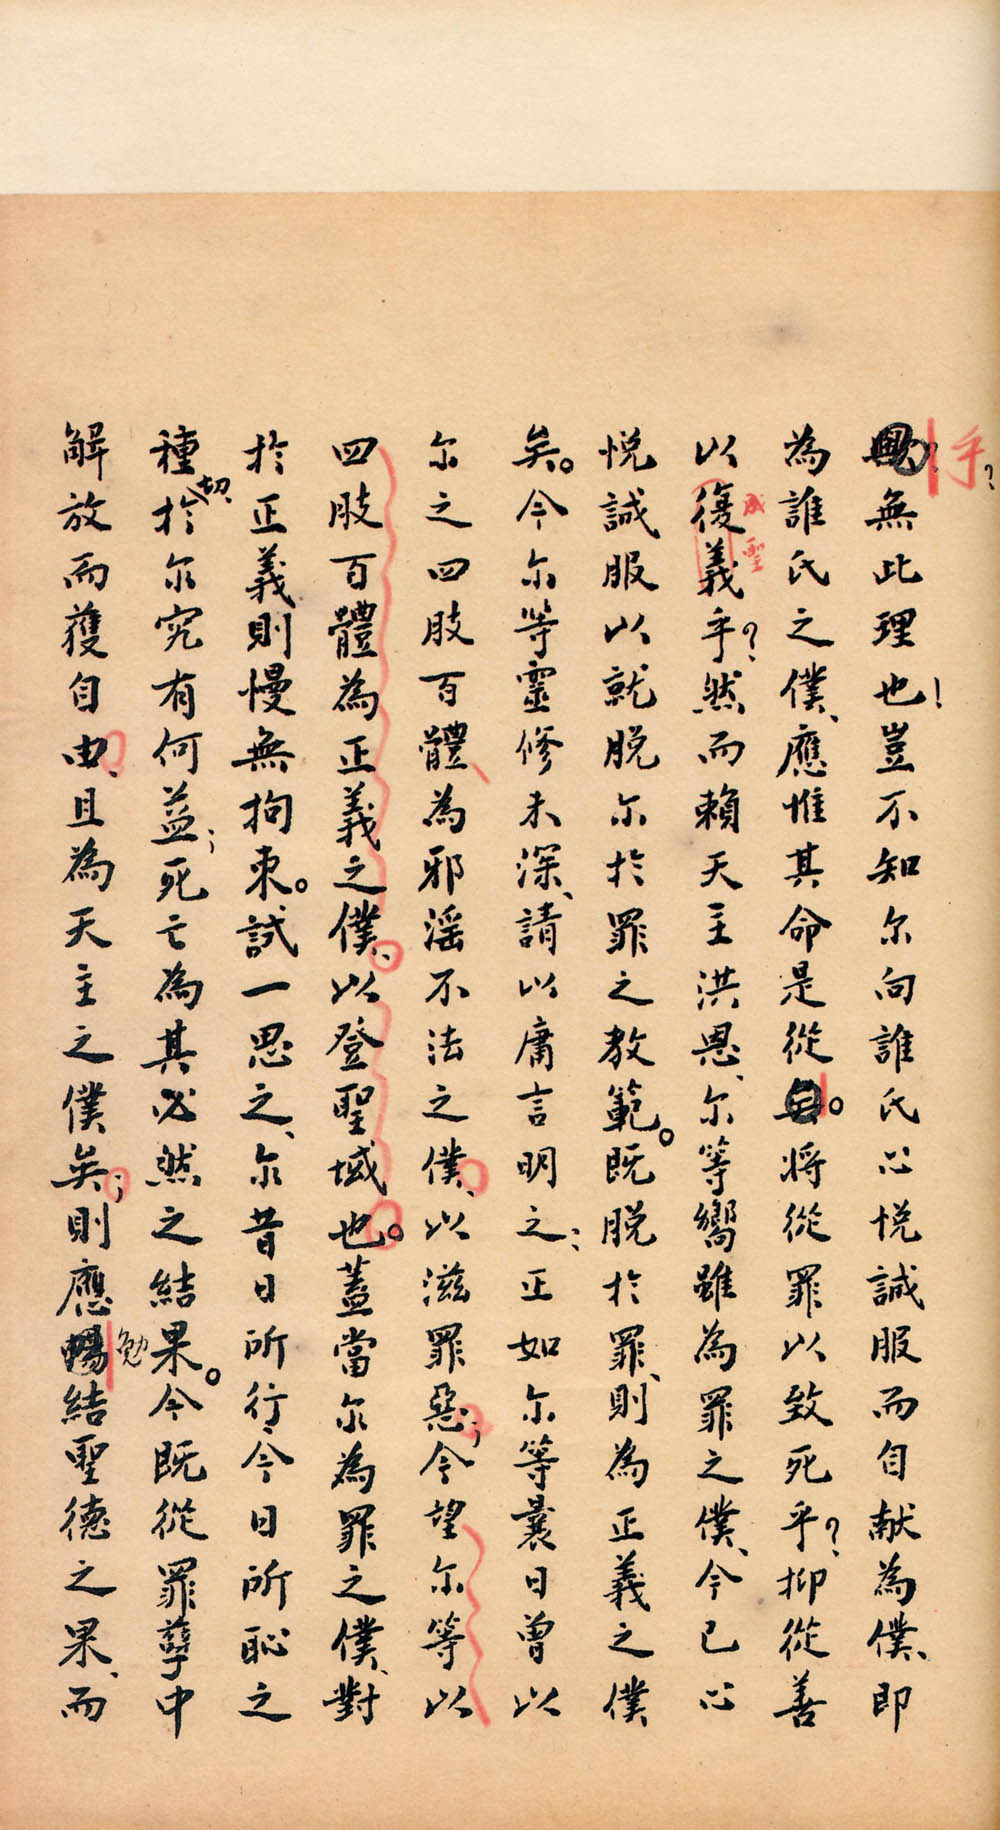 乎？
歟？無此理也！豈不知尔向誰氏心悅誠服而自献為僕、即
為誰氏之僕、應惟其命是從。將從罪以致死乎？抑從善
成聖
以復義乎？然而賴天主洪恩、尔等嚮雖為罪之僕、今已心
悅誠服以就脫尔於罪之教範。既脫於罪、則為正義之僕
矣。今尔等靈修未深、請以庸言明之：正如尔等曩日曾以
尔之四肢百體為邪淫不法之僕、以滋罪惡；今望尔等以
四肢百體為正義之僕、以登聖域也。蓋當尔為罪之僕、對
於正義則慢無拘束。試一思之、尔昔日所行、今日所恥之
切、
種於尔究有何益；死亡為其必然之結果。今既從罪孽中
勉
解放而獲自由、且為天主之僕矣；則應結聖德之果、而